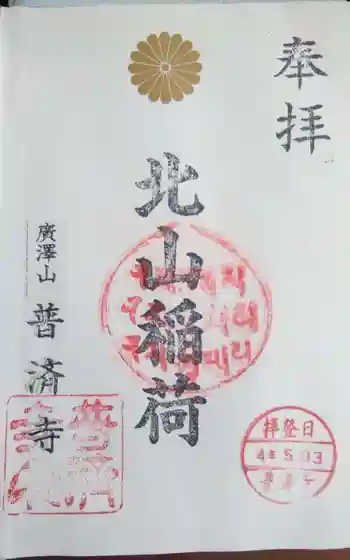 奉拝
北山稲荷
廣澤山
普済寺
拝登日
4.5.03